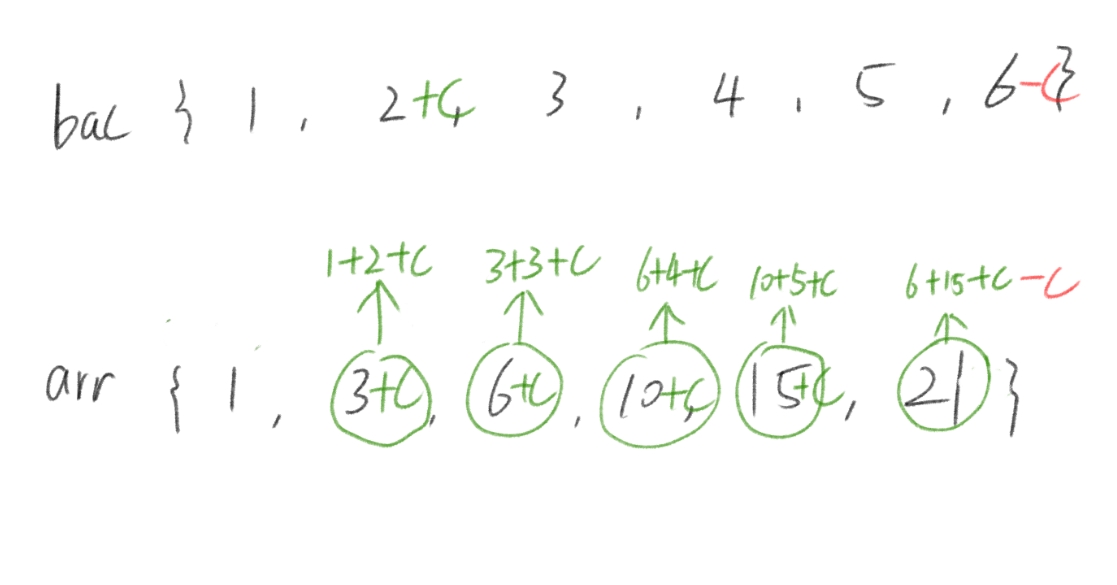 bac { 1 , 2+C, 3 , 4 , 5 , 6-C}
1+2+C 3+3+C 6+4+C 10+5+C 6+15+C-C
arr { 1 , 3+C, 6+C, 10+C, 15+C, 21 }